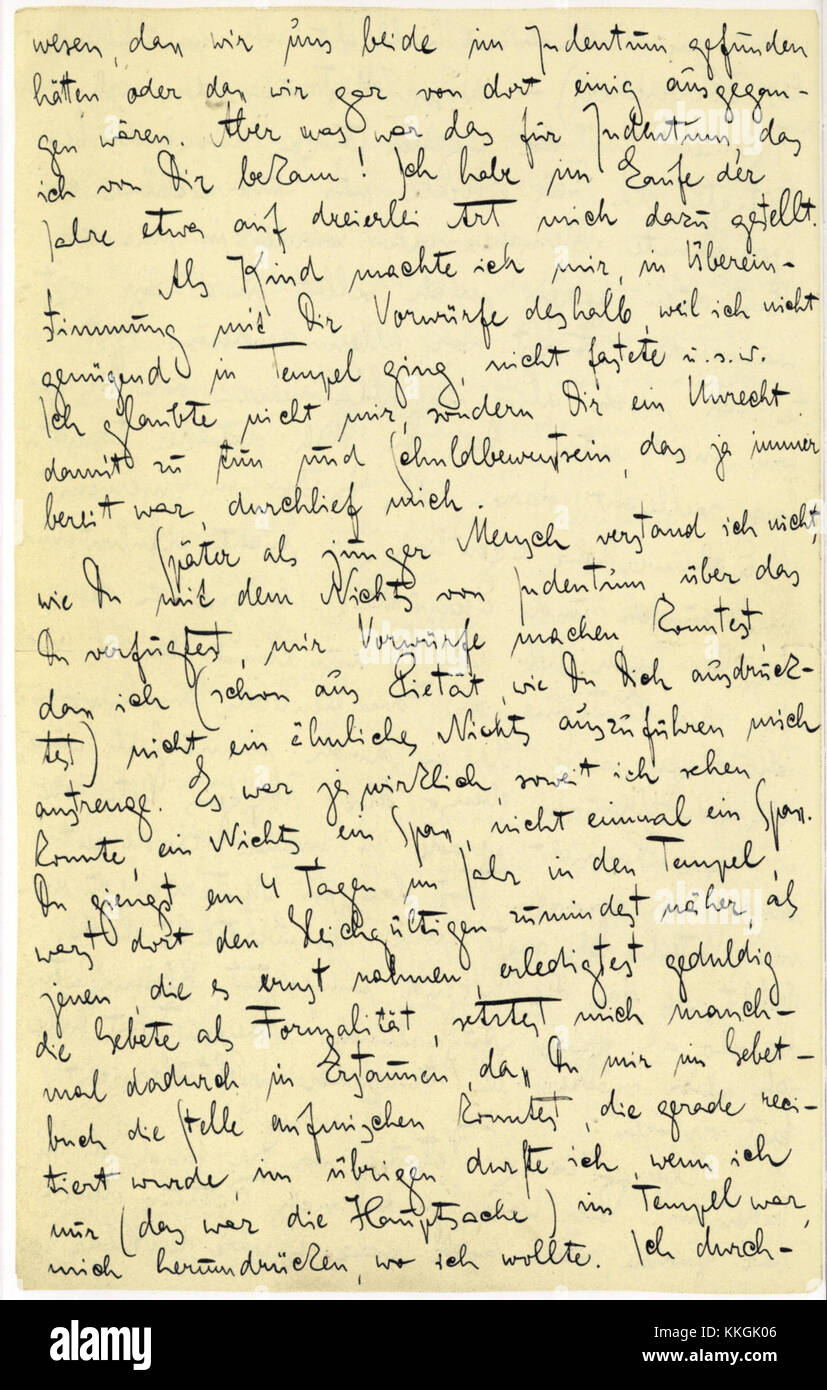 wesen, daß wir uns beide im Judentum gefunden
hätten oder daß wir gar von dort einig ausgegan-
gen wären. Aber was war das für Judentum, das
ich von Dir bekam! Ich habe im Laufe der
Jahre etwa auf dreierlei Art mich dazu gestellt.
Als Kind machte ich mir, in Überein-
stimmung mit Dir Vorwürfe deshalb, weil ich nicht
genügend in Tempel ging, nicht fastete u.s.w.
Ich glaubte nicht mir, sondern Dir ein Unrecht
damit zu tun und Schuldbewußtsein, das ja immer
bereit war, durchlief mich.
Später als junger Mensch verstand ich nicht,
wie Du mit dem Nichts von Judentum, über das
Du verfügtest, mir Vorwürfe machen konntest,
daß ich (schon aus Pietät, wie Du Dich ausdrück-
test) nicht ein ähnliches Nichts auszuführen mich
anstrenge. Es war ja wirklich, soweit ich sehen
konnte, ein Nichts, ein Spaß, nicht einmal ein Spaß.
Du giengst an 4 Tagen im Jahr in den Tempel,
warst dort den Gleichgültigen zumindest näher, als
jenen, die es ernst nahmen, erledigtest geduldig
die Gebete als Formalität, setztest mich manch-
mal dadurch in Erstaunen, daß Du mir im Gebet-
buch die Stelle aufmischen konntest, die gerade reci-
tiert wurde, im übrigen durfte ich, wenn ich
nur (das war die Hauptsache) im Tempel war,
mich herumdrücken, wo ich wollte. Ich durch-
alamy
Image ID: KKGK06
www.alamy.com